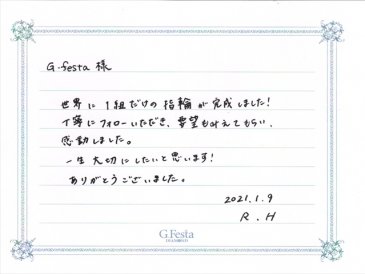 G.festa 様
世界に1組だけの指輪が完成しました!
丁寧にフォローいただき、要望も叶えてもらい、
感動しました。
一生大切にしたいと思います!
ありがとうございました。
2021.1.9
R.H
G.Festa
DIAMOND